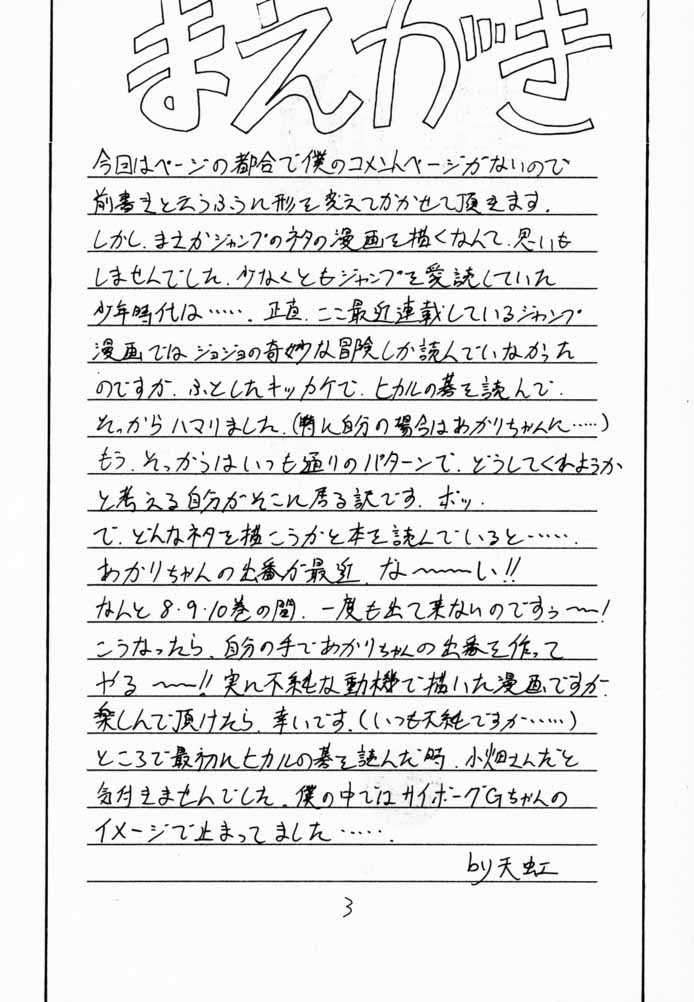 まえがき
今回はページの都合で僕のコメントページがないので
前書きと云うふうに形を変えてかかせて頂きます。
しかし、まさかジャンプのネタの漫画を描くなんて、思いも
しませんでした、少なくともジャンプを愛読していた
少年時代は……。正直、ここ最近連載しているジャンプ
漫画ではジョジョの奇妙な冒険しか読んでいなかった
のですが、ふとしたキッカケで、ヒカルの碁を読んで、
そっからハマりました、(特に自分の場合はあかりちゃんに……)
もう、そっからはいつも通りのパターンで、どうしてくれようか
と考える自分がそこに居る訳です、ポッ、
で、どんなネタを描こうかと本を読んでいると……、
あかりちゃんの出番が最近、な〜〜〜い!!
なんと8・9・10巻の間、一度も出て来ないのですぅ〜〜!
こうなったら、自分の手であかりちゃんの出番を作って
やる〜〜!!実に不純な動機で描いた漫画ですが、
楽しんで頂けたら、幸いです、(いつも不純ですが……)
ところで最初にヒカルの碁を読んだ時、小畑さんだと
気付きませんでした、僕の中ではサイボーグGちゃんの
イメージで止まってました……、
by天虹
3